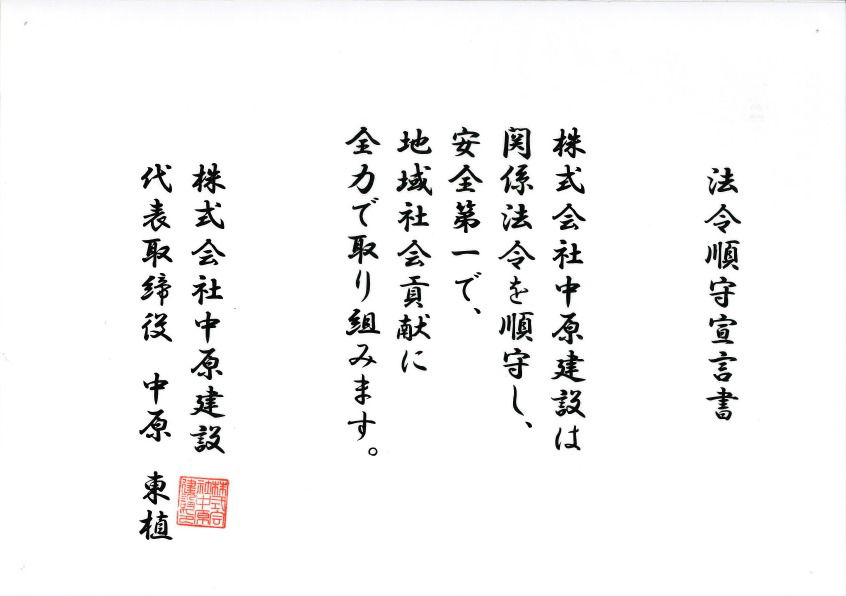 法令順守宣言書
株式会社中原建設は
関係法令を順守し、
安全第一で、
地域社会貢献に
全力で取り組みます。
株式会社中原建設
代表取締役 中原 東植
株式会
社中原
建設印